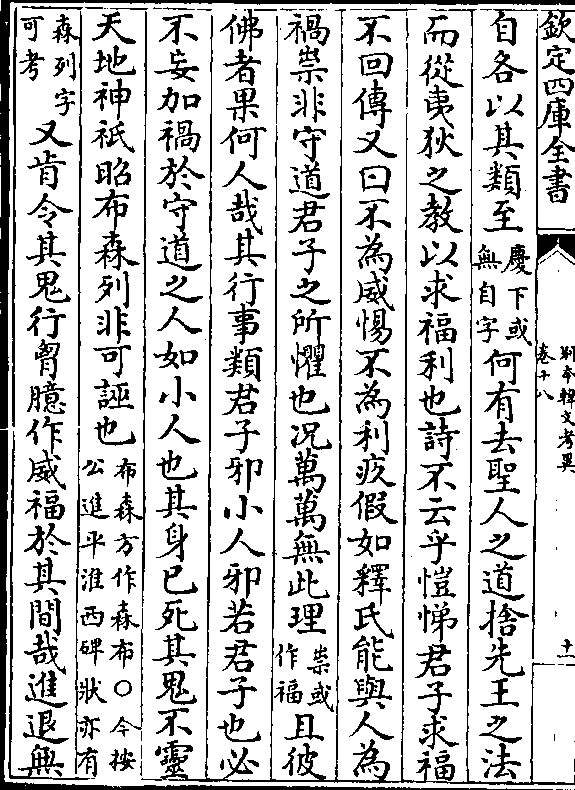 欽定四庫全書
別本韓文考異
卷十八
十一
自各以其類至慶下或無自字何有去聖人之道捨先王之法
而從夷狄之教以求福利也詩不云乎愷悌君子求福
不回傳又曰不為威惕不為利疚假如釋氏能與人為
禍祟非守道君子之所懼也况萬萬無此理祟或作福且彼
佛者果何人哉其行事類君子邪小人邪若君子也必
不妄加禍於守道之人如小人也其身已死其鬼不靈
天地神祇昭布森列非可誣也布森方作森布〇今按公進平淮西碑狀亦有
森列字可考又肯令其鬼行胷臆作威福於其間哉進退無